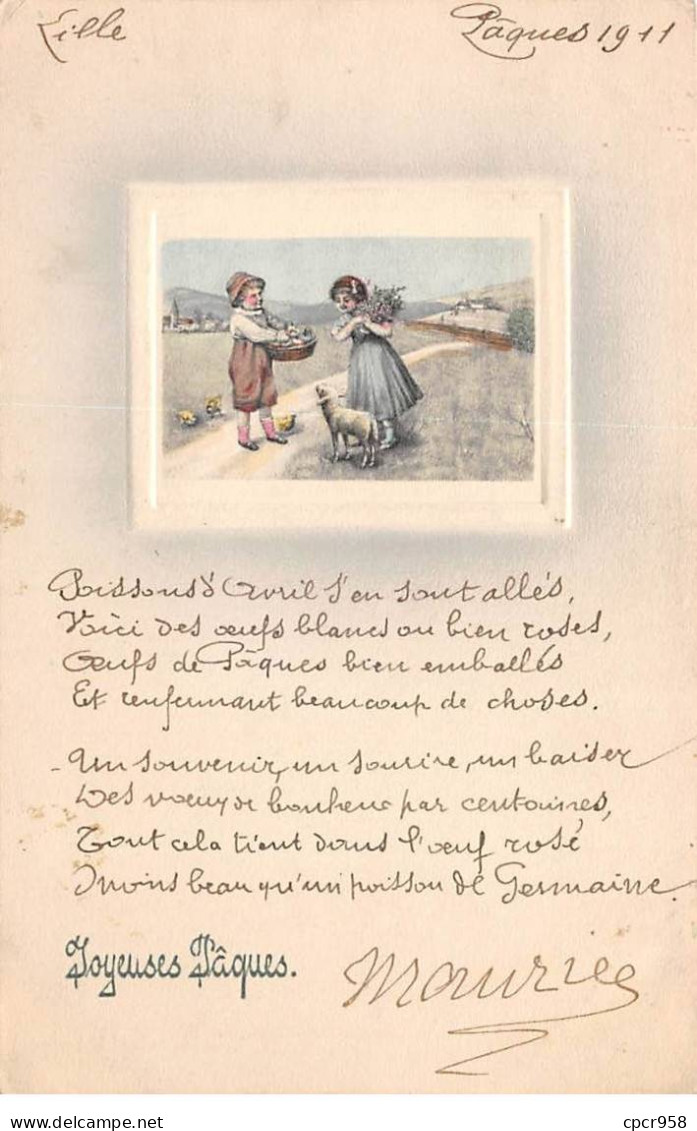 Lille Pâques 1911
Poissons d'Avril s'en sont allés,
Voici des œufs blancs ou bien roses,
Œufs de Pâques bien emballés
Et renfermant beaucoup de choses.
- Un souvenir, un sourire, un baiser
Des vœux de bonheur par centaines,
Tout cela tient dans l'œuf rosé
Moins beau qu'un poisson de Germaine.
Joyeuses Pâques.
Maurice
cpcr958